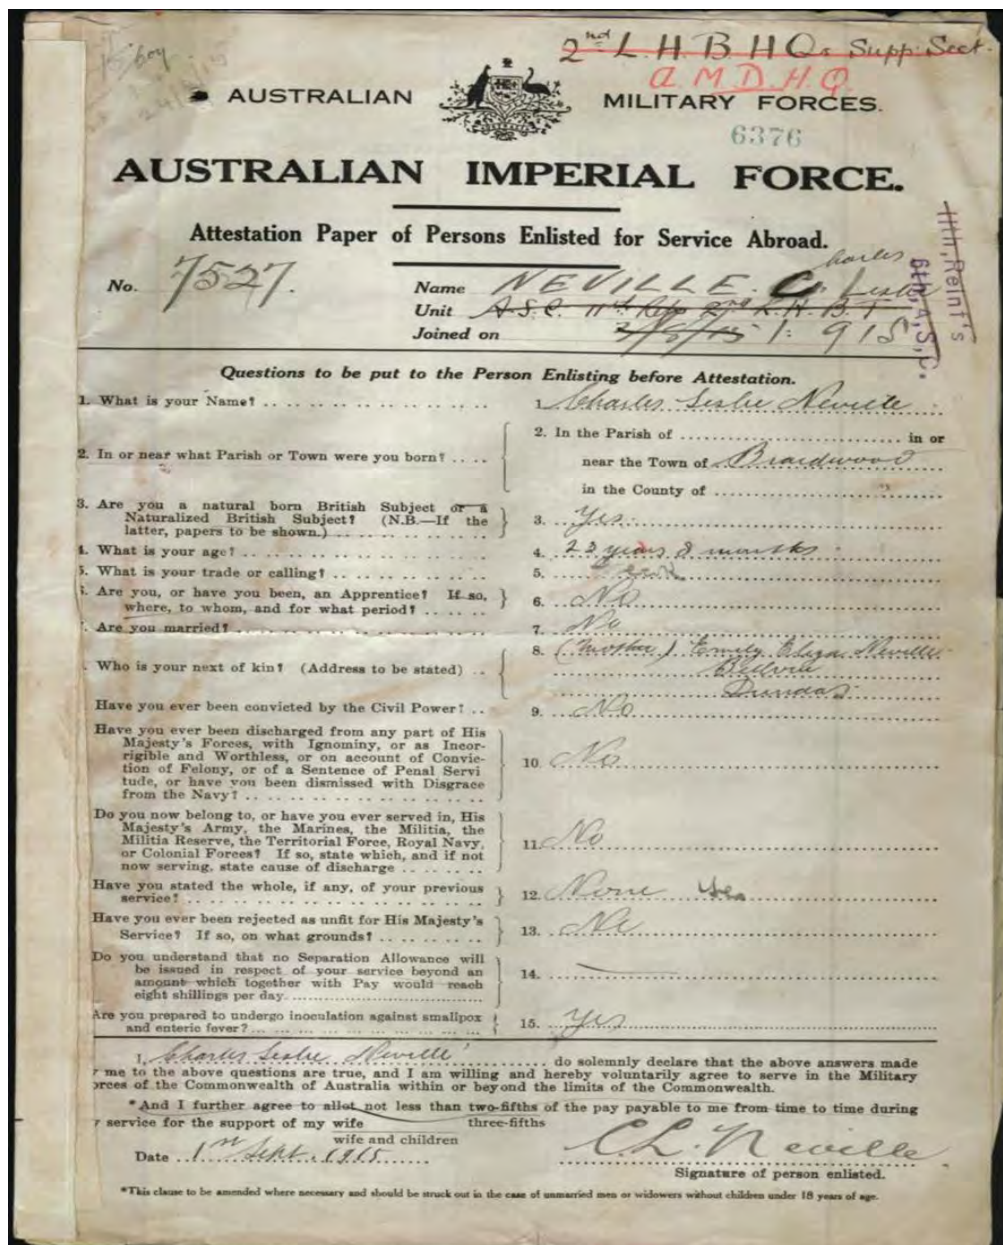 2nd L. H. B. H Qrs Supp: Sect.
A. M. D. H. Q.
AUSTRALIAN MILITARY FORCES.
6376
AUSTRALIAN IMPERIAL FORCE.
Attestation Paper of Persons Enlisted for Service Abroad.
11th, Reint's
6th, A, S, C.
No. 7527.
Name NEVILLE. C. harles Leslie
Unit A.S.C. 11th Rein 2nd L. H. B. T
Joined on 1. 9 15
Questions to be put to the Person Enlisting before Attestation.
1. What is your Name? 1. Charles Leslie Neville
2. In the Parish of in or
2. In or near what Parish or Town were you born? near the Town of Braidwood
in the County of
3. Are you a natural born British Subject or a
Naturalized British Subject? (N.B.—If the 3. Yes.
latter, papers to be shown.)
4. What is your age? 4. 23 years 8 months
5. What is your trade or calling? 5.
6. Are you, or have you been, an Apprentice? If so, 6. No
where, to whom, and for what period?
7. Are you married? 7. No
8. (Mother) Emily Eliza Neville
Who is your next of kin? (Address to be stated)
Dundas
Have you ever been convicted by the Civil Power? 9. No
Have you ever been discharged from any part of His
Majesty's Forces, with Ignominy, or as Incor-
rigible and Worthless, or on account of Convic- 10. No
tion of Felony, or of a Sentence of Penal Servi
tude, or have you been dismissed with Disgrace
from the Navy?
Do you now belong to, or have you ever served in, His
Majesty's Army, the Marines, the Militia, the
Militia Reserve, the Territorial Force, Royal Navy, 11. No
or Colonial Forces? If so, state which, and if not
now serving, state cause of discharge
Have you stated the whole, if any, of your previous 12. None Yes
service?
Have you ever been rejected as unfit for His Majesty's 13. No
Service? If so, on what grounds?
Do you understand that no Separation Allowance will
be issued in respect of your service beyond an 14.
amount which together with Pay would reach
eight shillings per day.
Are you prepared to undergo inoculation against smallpox 15. Yes
and enteric fever?
I, Charles Leslie Neville do solemnly declare that the above answers made
me to the above questions are true, and I am willing and hereby voluntarily agree to serve in the Military
orces of the Commonwealth of Australia within or beyond the limits of the Commonwealth.
*And I further agree to allot not less than two-fifths of the pay payable to me from time to time during
service for the support of my wife three-fifths
wife and children
Date 1st Sept. 1915 C L Neville
Signature of person enlisted.
*This clause to be amended where necessary and should be struck out in the case of unmarried men or widowers without children under 18 years of age.